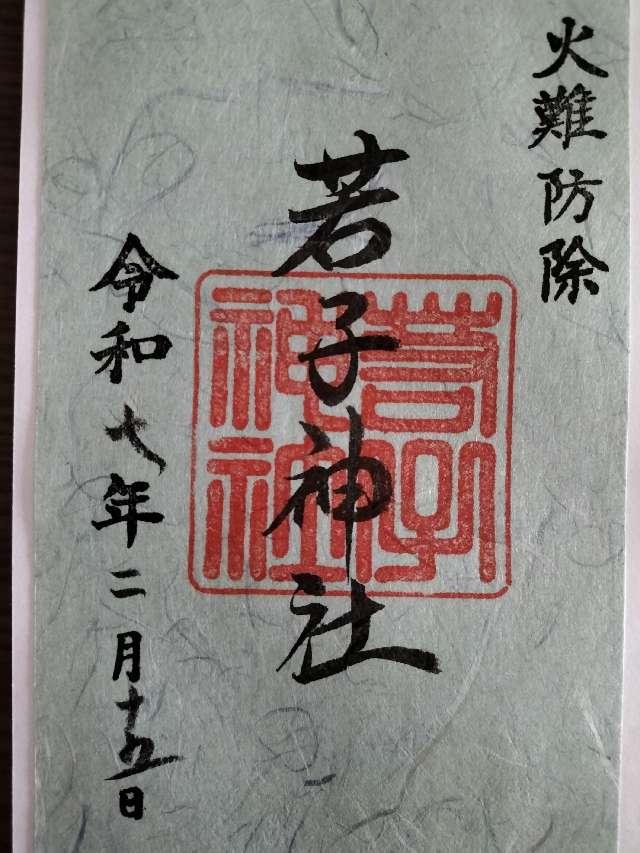 火難防除
若子神社
若子神社
令和七年二月十五日